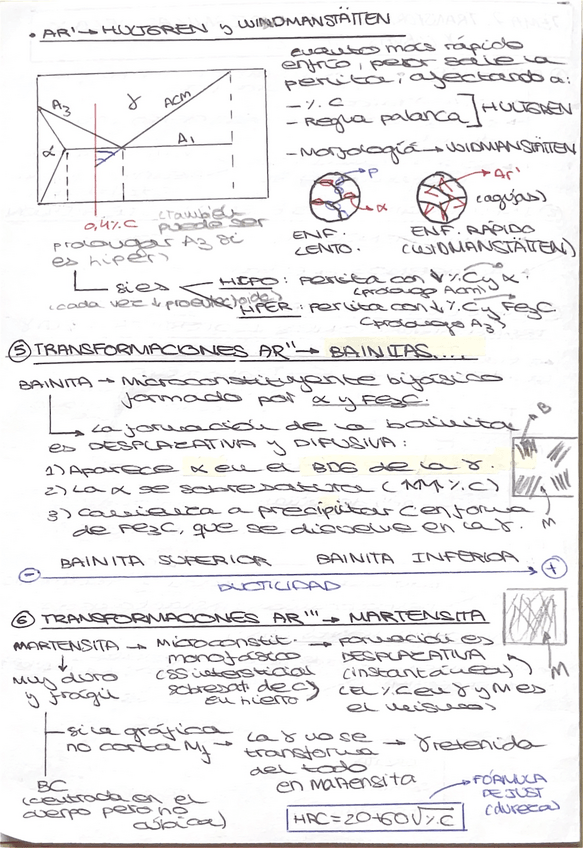 • AR' → HULTGREN y WINDMANSTÄTTEN
cuanto más rápido
enfrío, peor sale la
perlita, afectando a:
- % C
- Regla palanca
] HULTGREN
- Morfología → WIDMANSTÄTTEN
A3
γ
ACM
A1
α
0,4% C
(también
puede ser
prolongar A3 si
es hiper)
P
α
ENF.
LENTO.
Ar'
(agujas)
ENF. RÁPIDO
(WIDMANSTÄTTEN)
si es
(cada vez ↓ proeutectoide)
HIPO: perlita con ↓ % C y α.
(prolongo Acm)
HIPER: perlita con ↓ % C y Fe3C
(prolongo A3)
⑤ TRANSFORMACIONES AR'' → BAINITAS...
BAINITA → Microconstituyente bifásico
formado por α y Fe3C.
La formación de la bainita
es DESPLAZATIVA y DIFUSIVA:
1) Aparece α en el BDG de la γ.
2) La α se sobresatura (↑↑↑ % C)
3) Comienza a precipitar C en forma
de Fe3C, que se disuelve en la γ.
B
M
BAINITA SUPERIOR BAINITA INFERIOR
- +
DUCTILIDAD
⑥ TRANSFORMACIONES AR''' → MARTENSITA
MARTENSITA → Microconstit.
monofásico
(SS intersticial
sobresat. de C
en hierro)
→ Formación es
DESPLAZATIVA
(instantánea)
(EL % C en γ y M es
el mismo)
M
Muy duro
y frágil
si la gráfica
no corta Mf
→ La γ no se
transforma
del todo
en Martensita
→ γ retenida
BC
(centrada en el
cuerpo pero no
cúbica)
HRC = 20 + 60 √% C
FÓRMULA
DE JUST
(dureza)